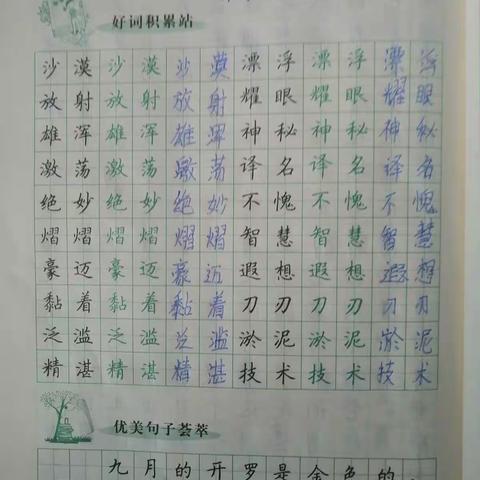 好词积累站
沙漠沙漠沙漠漂浮漂浮漂浮
放射放射放射耀眼耀眼耀眼
雄浑雄浑雄浑神秘神秘神秘
激荡激荡激荡译名译名译名
绝妙绝妙绝妙不愧不愧不愧
熠熠熠熠熠熠智慧智慧智慧
豪迈豪迈豪迈遐想遐想遐想
黏着黏着黏着刀刃刀刃刀刃
泛滥泛滥泛滥淤泥淤泥淤泥
精湛精湛精湛技术技术技术
优美句子荟萃
九月的开罗是金色的